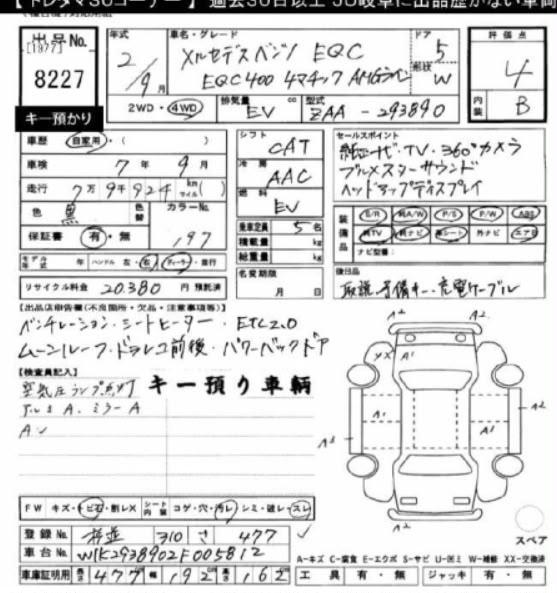 【 トレタマSUコーナー 】 過去30日以上 JU岐阜に出品歴がない車両
出品No.
[1977]
8227
キー預かり
年式 2/9月
車名・グレード メルセデスベンツ EQC
EQC400 4マチック AMGライン
ドア 5
形状 W
評価点 4
内装 B
2WD・4WD
排気量 EV cc
型式 ZAA-293890
車歴 自家用・( )
車検 7年 9月
走行 7万9千924 km マイル( )
色 黒 色替
カラーNo. 197
保証書 有・無
モデル年式 年 ハンドル 左・右 ディーラー・並行
リサイクル料金 20,380 円 預託済
シフト CAT
冷房 AAC
燃料 EV
乗車定員 5名
積載量 kg
総重量 kg
名変期限
月 日
セールスポイント
純正ナビ・TV・360°カメラ
ブルメスターサウンド
ヘッドアップディスプレイ
装備品 S/R AA/W P/S P/W ABS
純TV 純ナビ 革シート 外ナビ エアB
ナビ型番:
後日品
取説、予備キー、充電ケーブル
【出品店申告欄(不良箇所・欠品・注意事項等)】
ベンチレーション・シートヒーター・ETC2.0
ムーンルーフ・ドラレコ前後・パワーバックドア
【検査員記入】
空気圧ランプ点灯
キー預り車輌
アルミA、ミラーA
A2
A2
XX A1
A2
A1
A1
A2
A3
A2
A2
スペア
FW キズ・トビ石・割レX シート内装 コゲ・穴・汚レ・シミ・破レ・スレ
登録No. 310 さ 477
車台No. W1K2938902F005812
A-キズ C-腐食 E-エクボ S-サビ U-凹ミ W-補修 XX-交換済
車庫証明用 長さ 477cm 幅 192cm 高さ 162cm
工具 有・無 ジャッキ 有・無